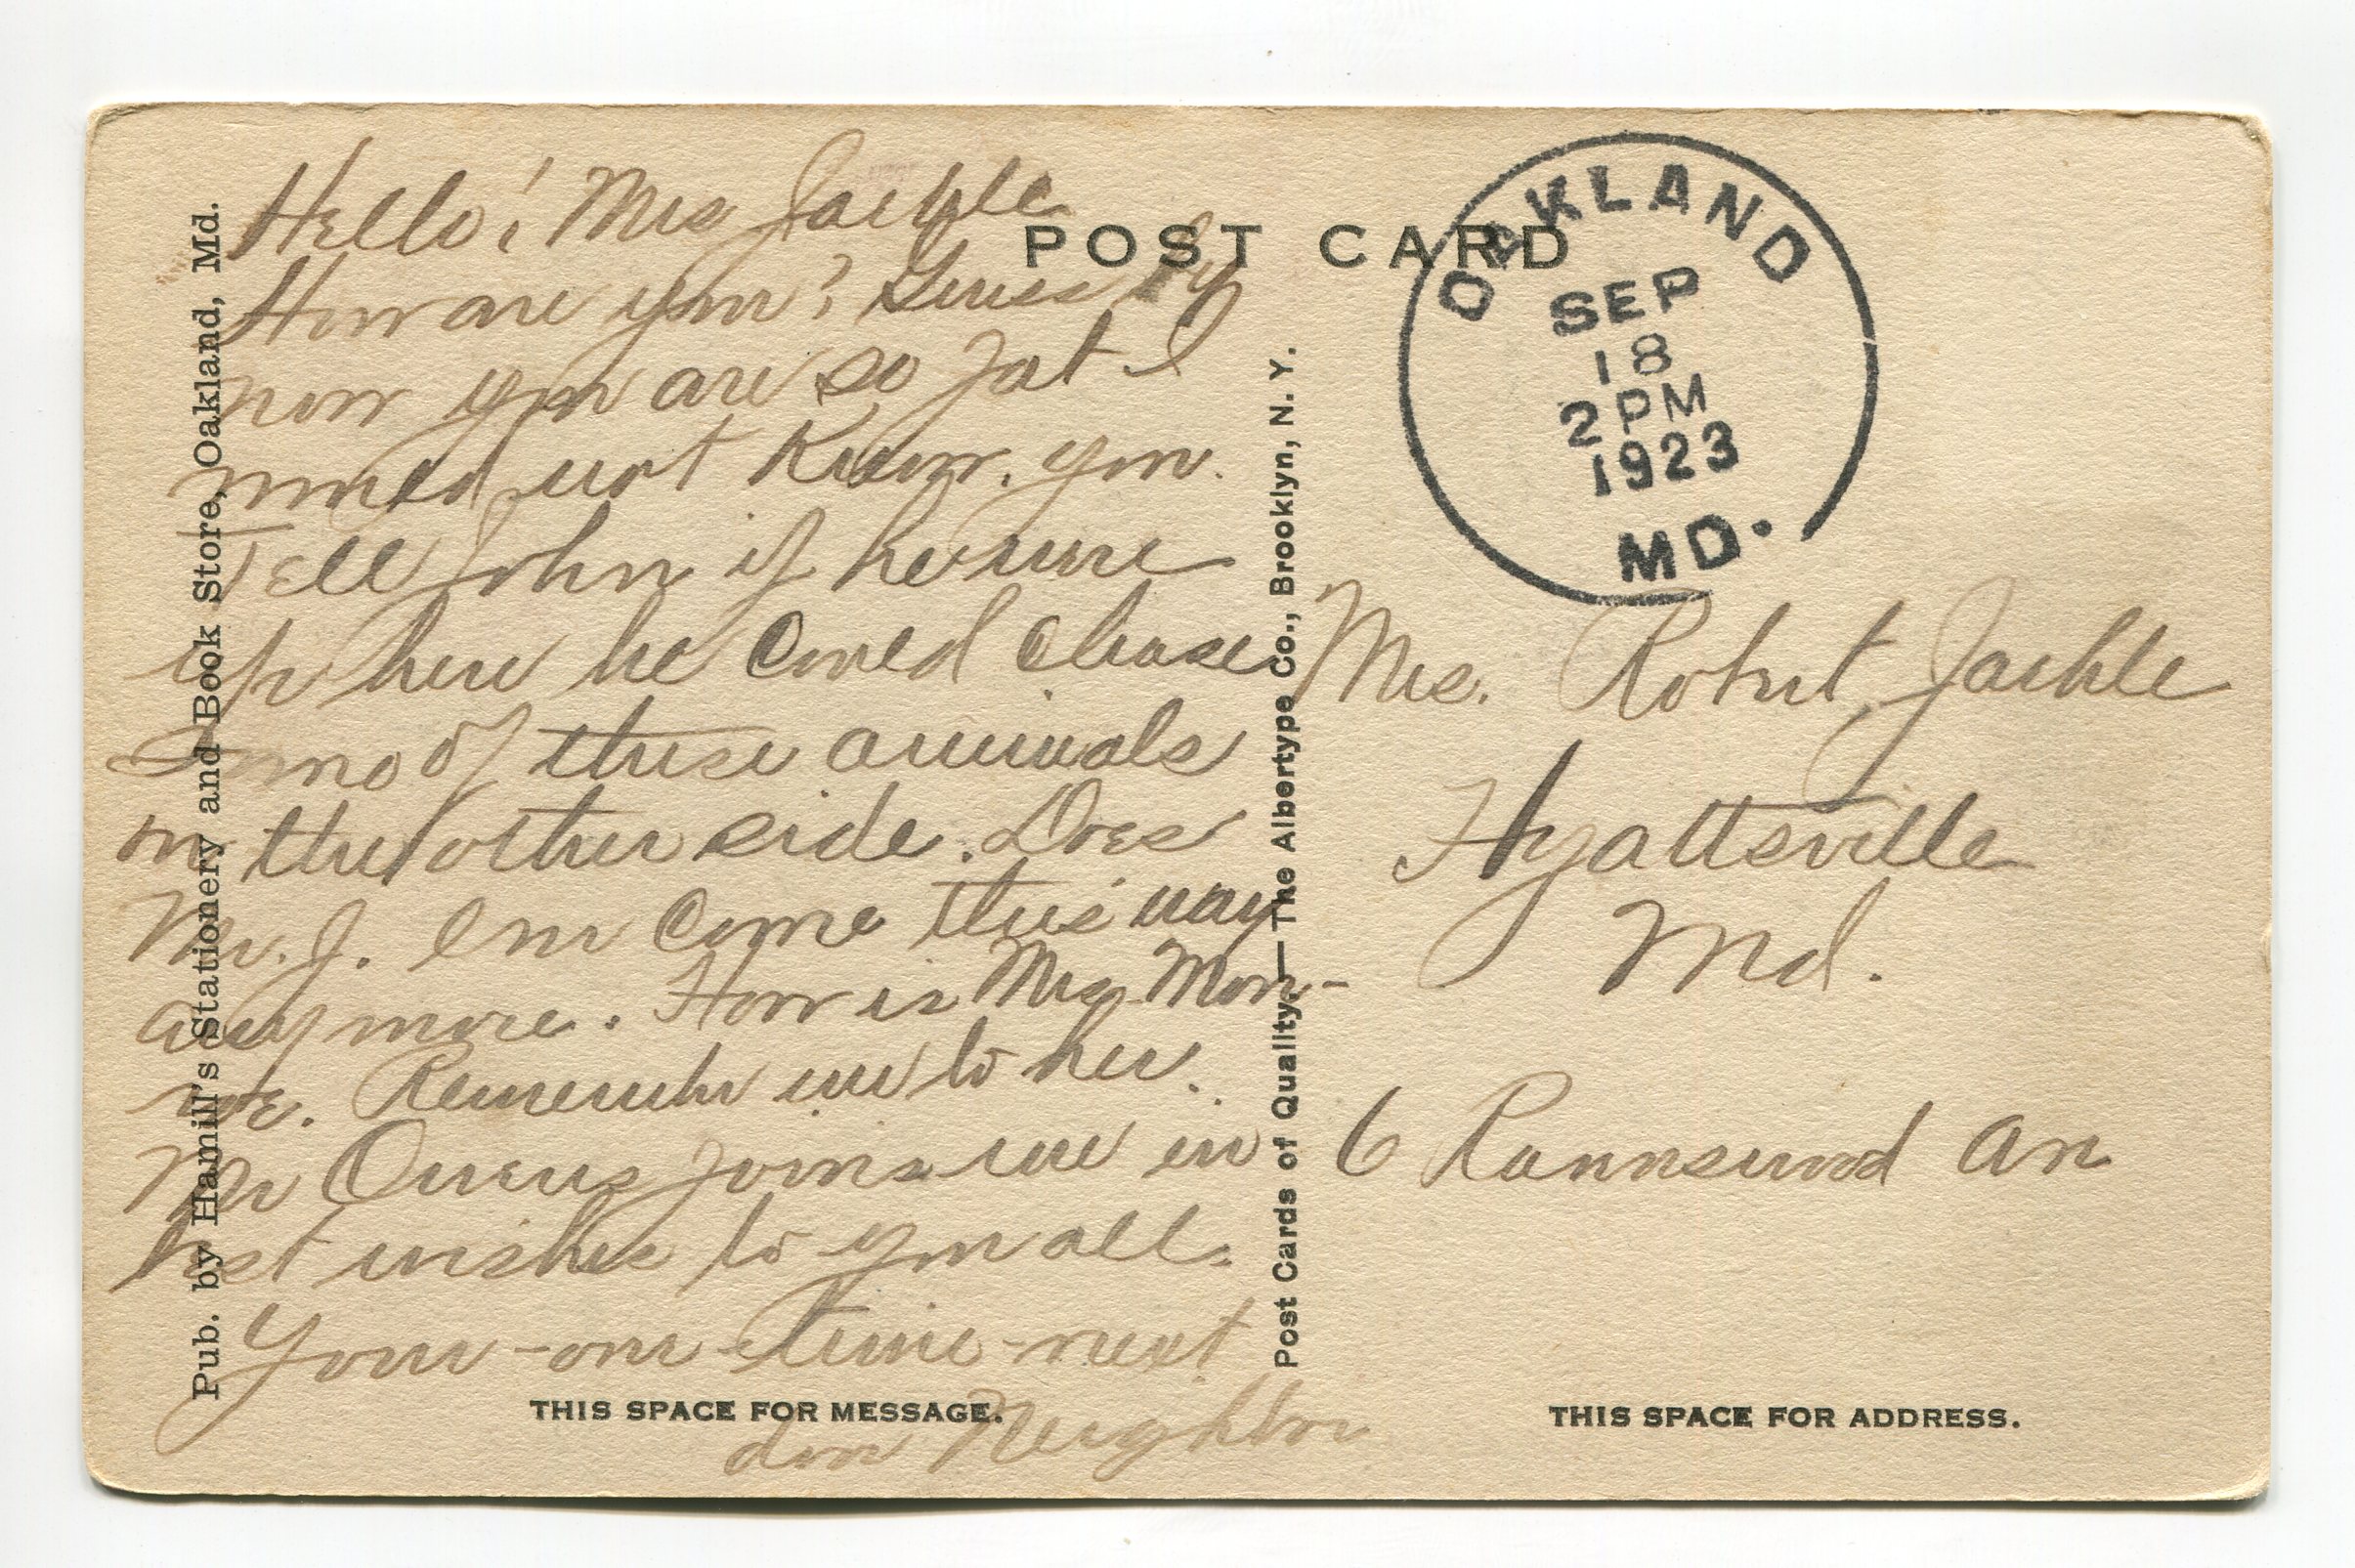 Hello! Mrs Jaehle
How are you? Guess by
now you are so fat I
would not know you.
Tell John if he were
up here he could chase
some of these animals
on the other side. Does
Mr. J. ever come this way
any more. How is Mrs Mon-
roe. Remember me to her.
Mr Owens joins me in
best wishes to you all.
Your-one-time-next
door Neighbor
Pub. by Hamill's Stationery and Book Store, Oakland, Md.
POST CARD
THIS SPACE FOR MESSAGE.
Post Cards of Quality.—The Albertype Co., Brooklyn, N. Y.
OAKLAND
SEP
18
2 PM
1923
MD.
Mrs. Robert Jaehle
Hyattsville
Md.
6 Ravenswood Av
THIS SPACE FOR ADDRESS.